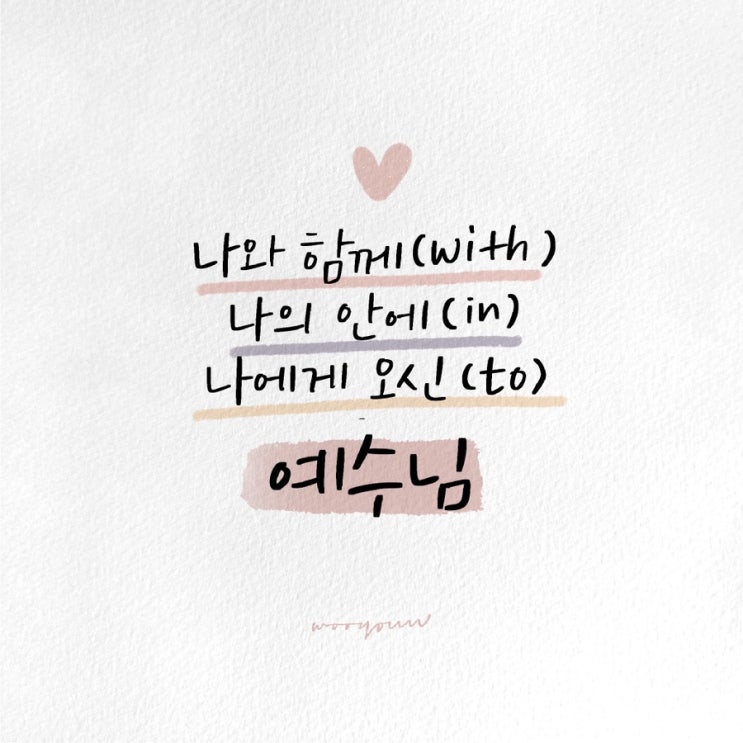 나와 함께(with)
나의 안에(in)
나에게 오신(to)
예수님